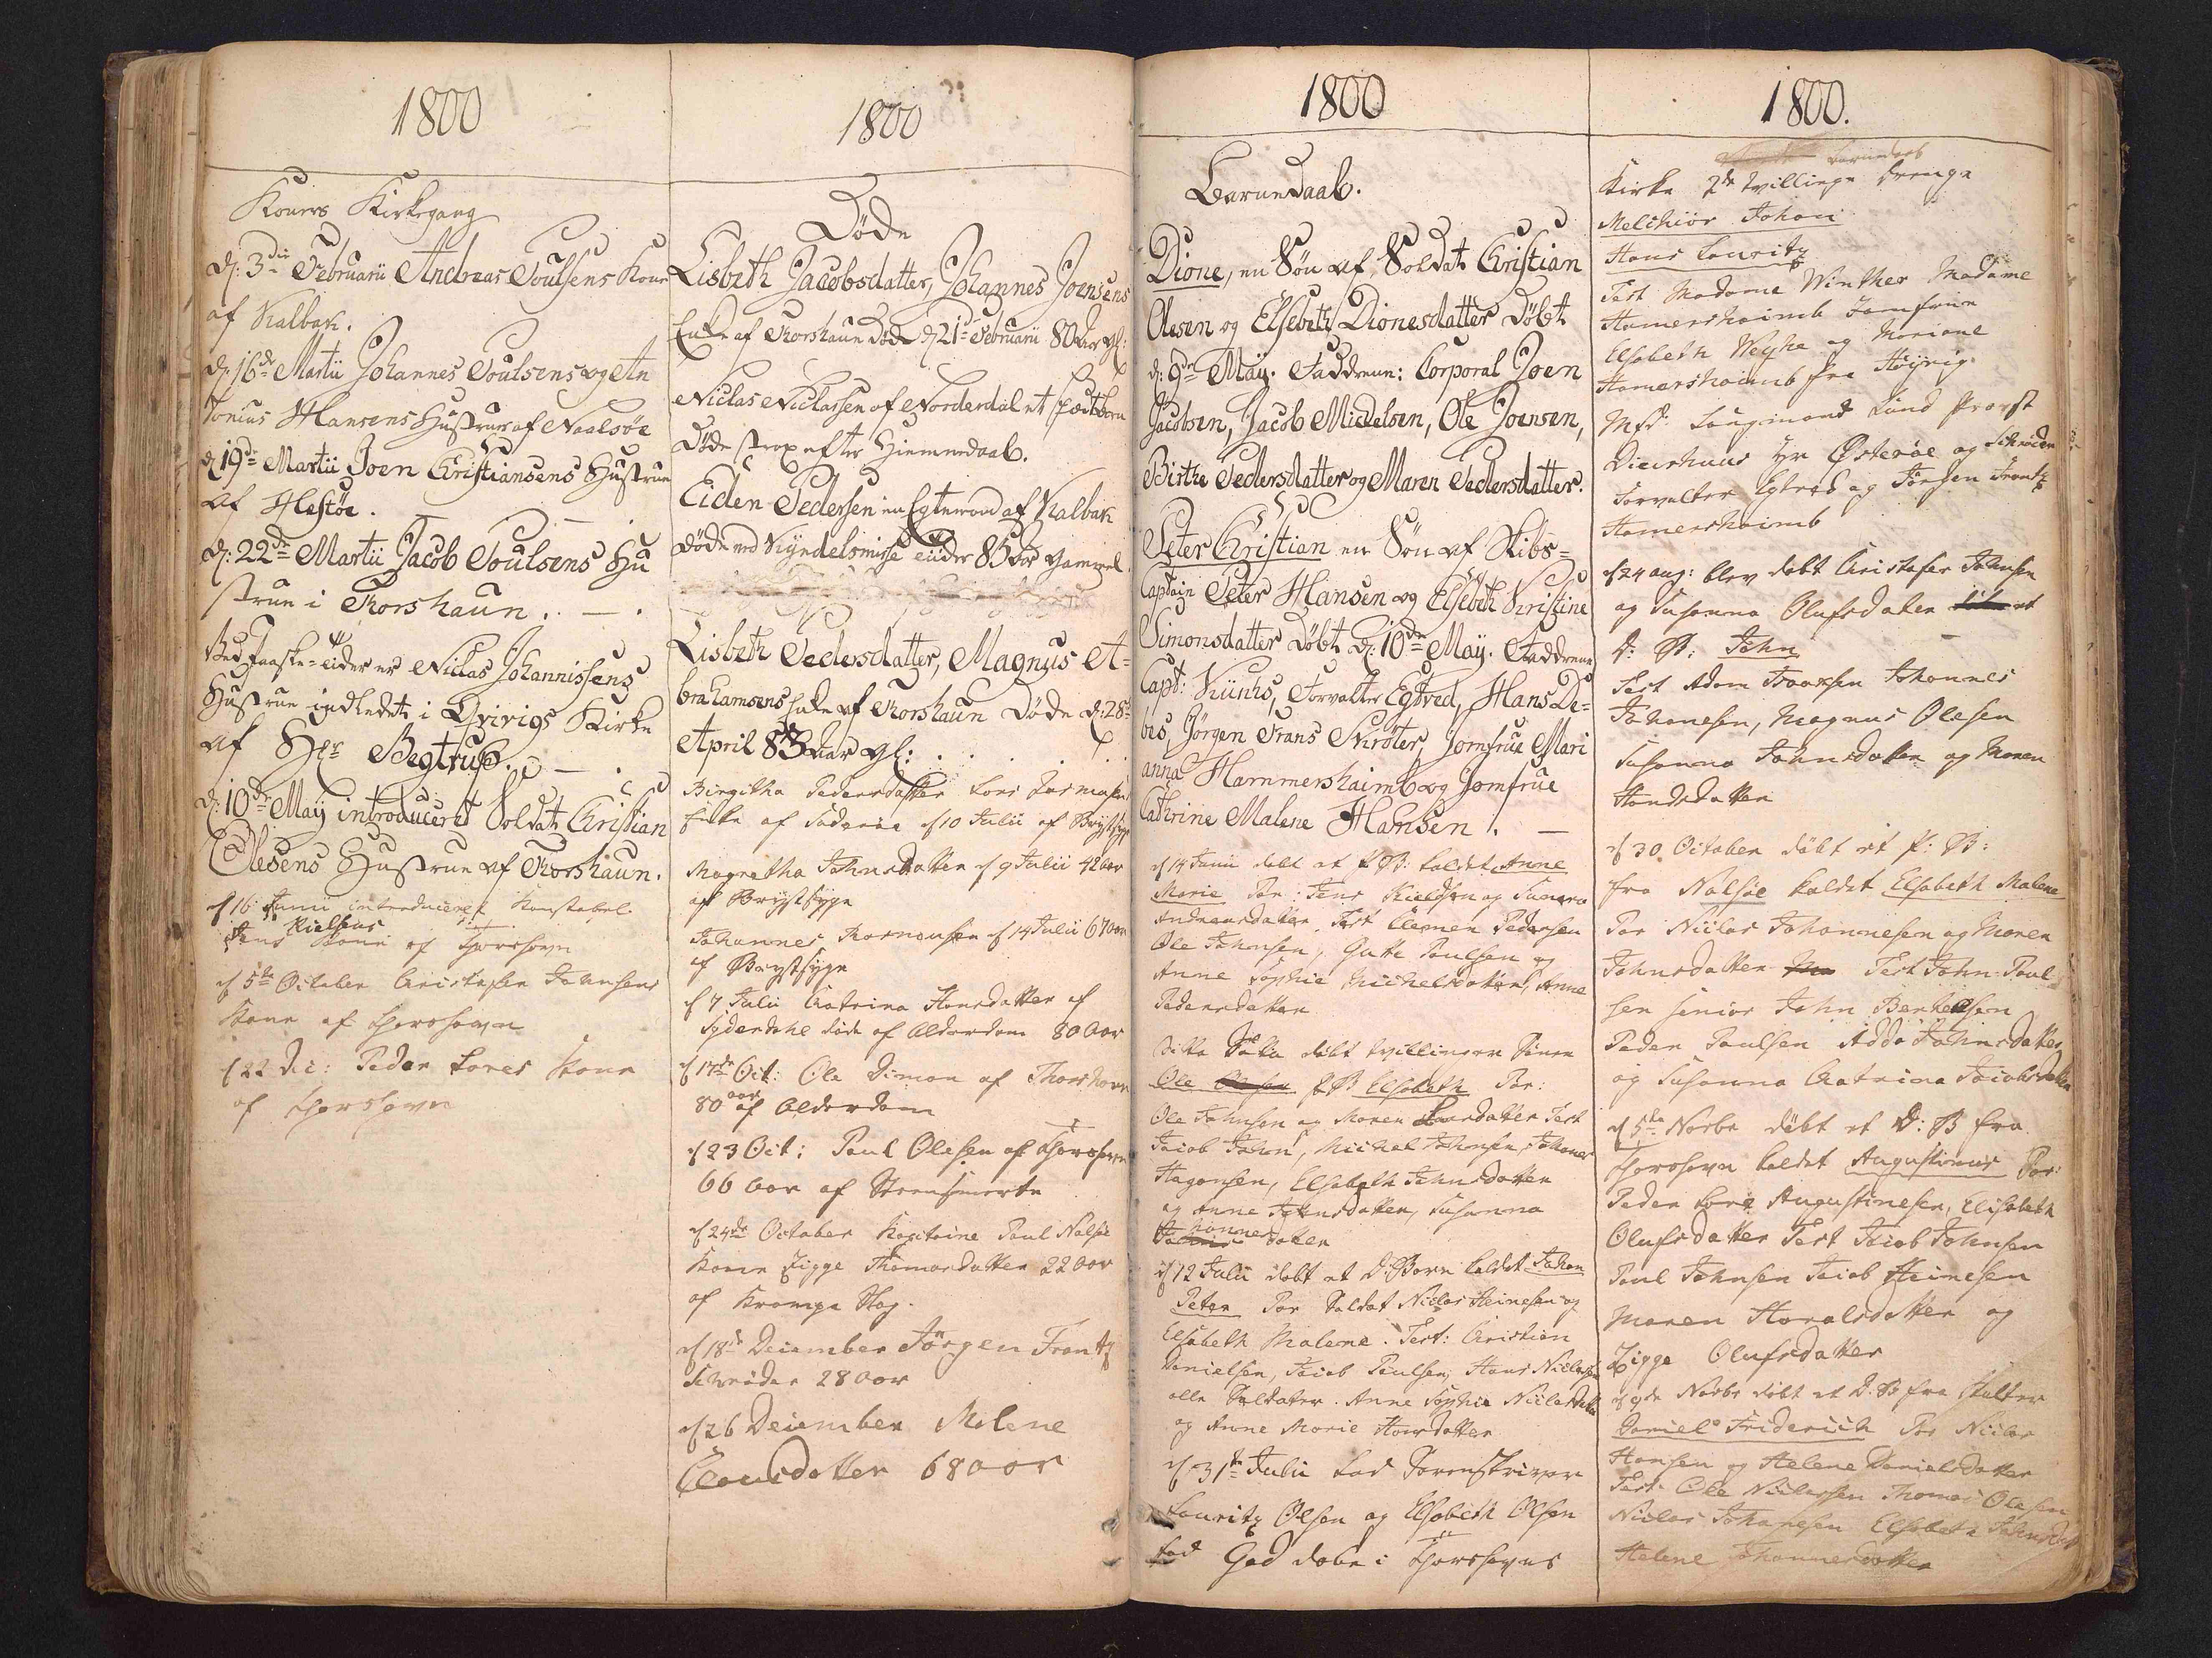 1800
Koners Kirkegang
d: 3die Februarii Andreas Poulsens Kone
af Kalbak.
d. 16de Martii Johannes Poulsens og An
tonius Hansens Hustruer af Naalsøe
d 19de Martii Joen Christiansens Hustrue
af Hestøe.
d: 22de Martii Jacob Poulsens Hu
strue i Thorshaun. — .
Ved Paaske-tider er Niclas Johannissens
Hustrue indledet i Qvivigs Kirke
af Hr Begtrup. — .
d: 10de May introduceret Soldat Christian
Olesens Hustrue af Thorshaun.
d 16 Junii introduceret Konstabel
Jens Kielsens Kone af Thorshavn
d 5te October Christopher Johnsens
Kone af Thorshavn
d 22 Dec: Peder Lores Kone
af Thorshavn
1800
Døde
Lisbeth Jacobsdatter, Johannes Joensens
Enke af Thorshaun døde d 21de Februarii 80 Aar gl:
Niclas Niclassen af Norderdal et spædt barn
døde strax efter Hiemmedaab.
Eiden Pedersen en Egtemand af Kalbak
døde ved Kyndelsmisse tider 85 Aar gammel.
Lisbeth Pedersdatter, Magnus A-
brahamsens Enke af Thorshaun døde d: 28de
April 83 Aar gl: . . . .
Birgitha Pedersdatter Lars Rasmusens
Enke af Suderøe d 10 Julii af Brystsyge
Magretha Johnsdatter d 9 Julii 42 Aar
af Brystsyge
Johannes d 14 Julii 67 Aar
af Brystsyge
d 7 Julii Catrina Hansdatter af
Syderdahl døde af Alderdom 80 Aar
d 17de Oct: Ole Dimon af Thorshavn
80 aar af Alderdom
d 23 Oct: Poul Olesen af Thorshavn
66 Aar af Steensmerte
d 24de October Kapitaine Poul Nalsøe
Kone Zigge Thomasdatter 22 Aar
af Krampe Slag.
d 18de December Jørgen Frantz
Schrøder 28 Aar
d 26 December Malene
Clausdatter 68 Aar
1800
BarneDaab.
Dione, en Søn af Soldat Christian
Olesen og Elsebeth Dionesdatter døbt
d: 9de May. Faddrene: Corporal Joen
Jacobsen, Jacob Mickelsen, Ole Joensen,
Birthe Pedersdatter og Maren Pedersdatter.
Peter Christian en Søn af Skibs-
Captain Peter Hansen og Elsebeth Kristine
Simonsdatter døbt d: 10de May. Faddrene
Capt: Kühs, Forvalter Egtved, Hans De-
bes, Jørgen Frans Skrøter, Jomfrue Mari
anna Hammershaimb og Jomfrue
Cathrine Malene Hansen. —
d 14 Junii døbt et P B: kaldet Anne
Marie For: Jens Kieldsen og Sunneva
Andreasdatter. Test Clemen Pedersen
Ole Johnsen, Gutte Poulsen og
Anne Sophie Michelsdatter, Anne
Pedersdatter
Dito Dato døbt tvillinger Sønen
Ole Olesen P B Elsebeth For:
Ole Johnsen og Maren Test
Jacob Johns, Michel Johnsen, Johanes
Hagonsen, Elsebeth Johnsdatter
og Anne Johnsdatter, Susanna
Johannesdatter
d 12 Julii døbt et D: Barn kaldet Johan
Peter For Soldat Niclas Heinesen og
Elsebeth Malene. Test: Christian
Danielsen, Jacob Poulsen, Hans Niclassen
alle Soldater. Anne Sophie Niclasdatter
og Anne Marie Hansdatter
d 31te Julii lod Sorenskriver
Lauritz Olsen og Elsebeth Olsen
fød Gad døbe i Thorshavns
1800.
Barnedaab
Kirke 2de tvillinge Drenge
Melchior Johan
Hans Lauritz
Test Madame Winther Madame
Hamershaimb Jomfrue
Elsebeth Weyhe og Mariane
Hamershaimb fra Høyvig
Msr: Laugmand Lund Provst
Dierhuus Hr Østerøe og Schrøder
Forvalter Egtved og Jørgen Frantz
Hamershaimb
d 24 aug: blev døbt Christofer Johnsen
og Susanna Olufsdatter et
D: B: John
Test Adam Isaaksen Johannes
Johanesen, Magnus Olesen
Susanna Johnsdatter og Maren
Hansdatter
d 30 October døbt et P: B:
fra Nalsøe kaldet Elsebeth Malene
For Niclas Johannesen og Maren
Johnsdatter Test John Poul-
sen senior John Berthelsen
Peder Poulsen Adda Johnsdatter
og Susanna Catrina Jacobsdatter
d 5te Novbr døbt et D: B fra
Thorshavn kaldet Augustinus For:
Peder Lore Augustinesen, Elisabeth
Olufsdatter Test Jacob Johnsen
Poul Johnsen Jacob Heinesen
Maren Haralsdatter og
Zigge Olufsdatter
d 9de Novbr døbt et D: B fra Hulter
Daniel Friderich For Niclas
Hansen og Helene Danielsdatter
Test: Ole Niclassen Thomas Olesen
Niclas Johanesen Elsebeth Johnsdat
Helene Johannesdatter